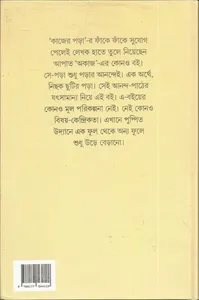 'কাজের পড়া'-র ফাঁকে ফাঁকে সুযোগ
পেলেই লেখক হাতে তুলে নিয়েছেন
আপাত 'অকাজ'-এর কোনও বই।
সে-পড়া শুধু পড়ার আনন্দেই। এক অর্থে,
নিছক ছুটির পড়া। সেই আনন্দ-পাঠের
যৎসামান্য নিয়ে এই বই। এ-বইয়ের
কোনও মূল পরিকল্পনা নেই। নেই কোনও
বিষয়-কেন্দ্রিকতা। এখানে পুষ্পিত
উদ্যানে এক ফুল থেকে অন্য ফুলে
শুধু উড়ে বেড়ানো।